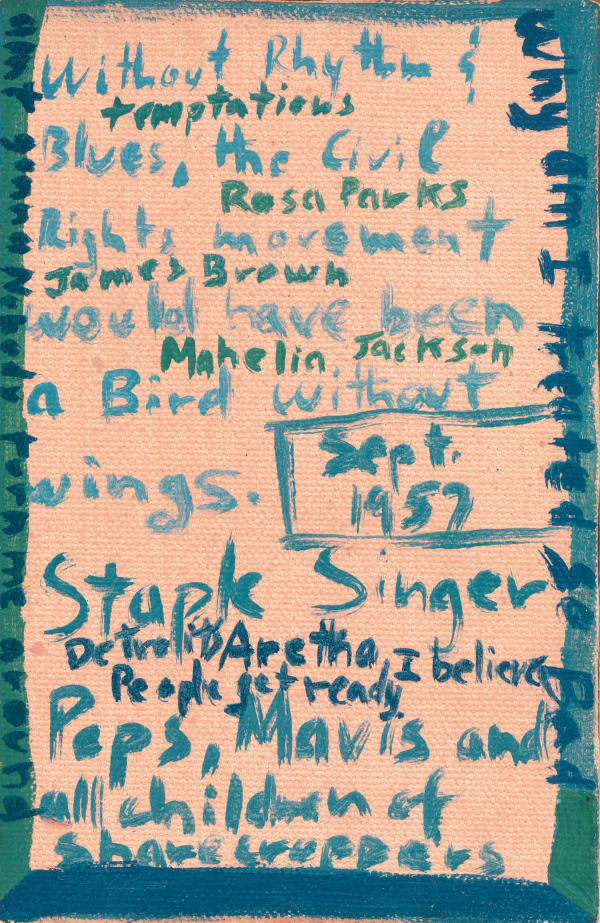 Without Rhythm &
temptations
Blues, the Civil
Rosa Parks
Rights movement
James Brown
would have been
Mahelia Jackson
a Bird without
wings.
Sept.
1957
Staple Singer
Detroits Aretha, I believe
People get ready.
Pops, Mavis and
all children of
sharecroppers
Why am I treated so Bad
aint Nobody turn me around